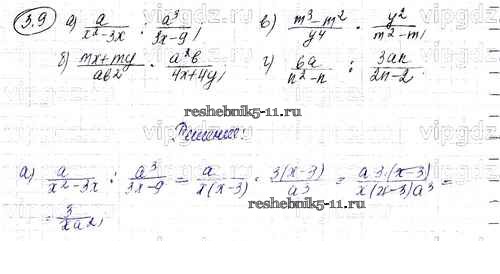 3.9 а) a/(x²-3x) : a³/(3x-9), в) (m³-m²)/y⁴ · y²/(m²-m),
б) (mx+my)/(ab²) · a²b/(4x+4y), г) 6a/(n²-n) : 3an/(2n-2).
reshebnik5-11.ru
Решение:
а) a/(x²-3x) : a³/(3x-9) = a/(x(x-3)) · 3(x-3)/a³ = a·3·(x-3)/(x(x-3)a³) =
= 3/(xa²),
reshebnik5-11.ru